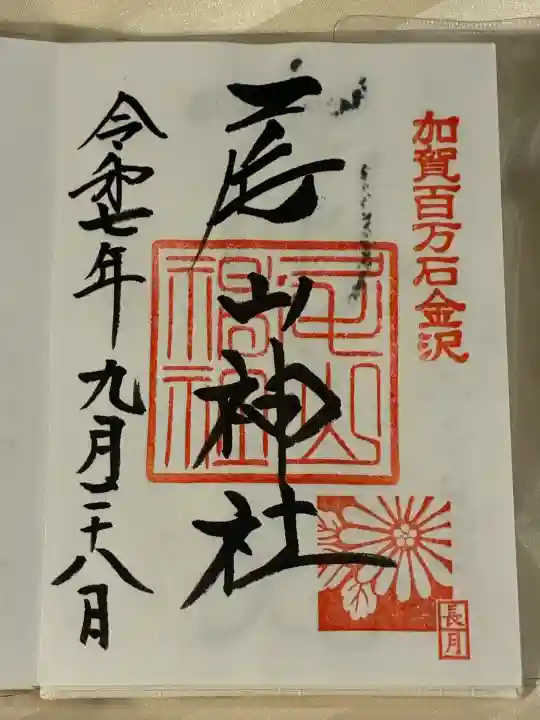 加賀百万石金沢
長月
尾山神社
尾山神社
令和七年九月二十八日